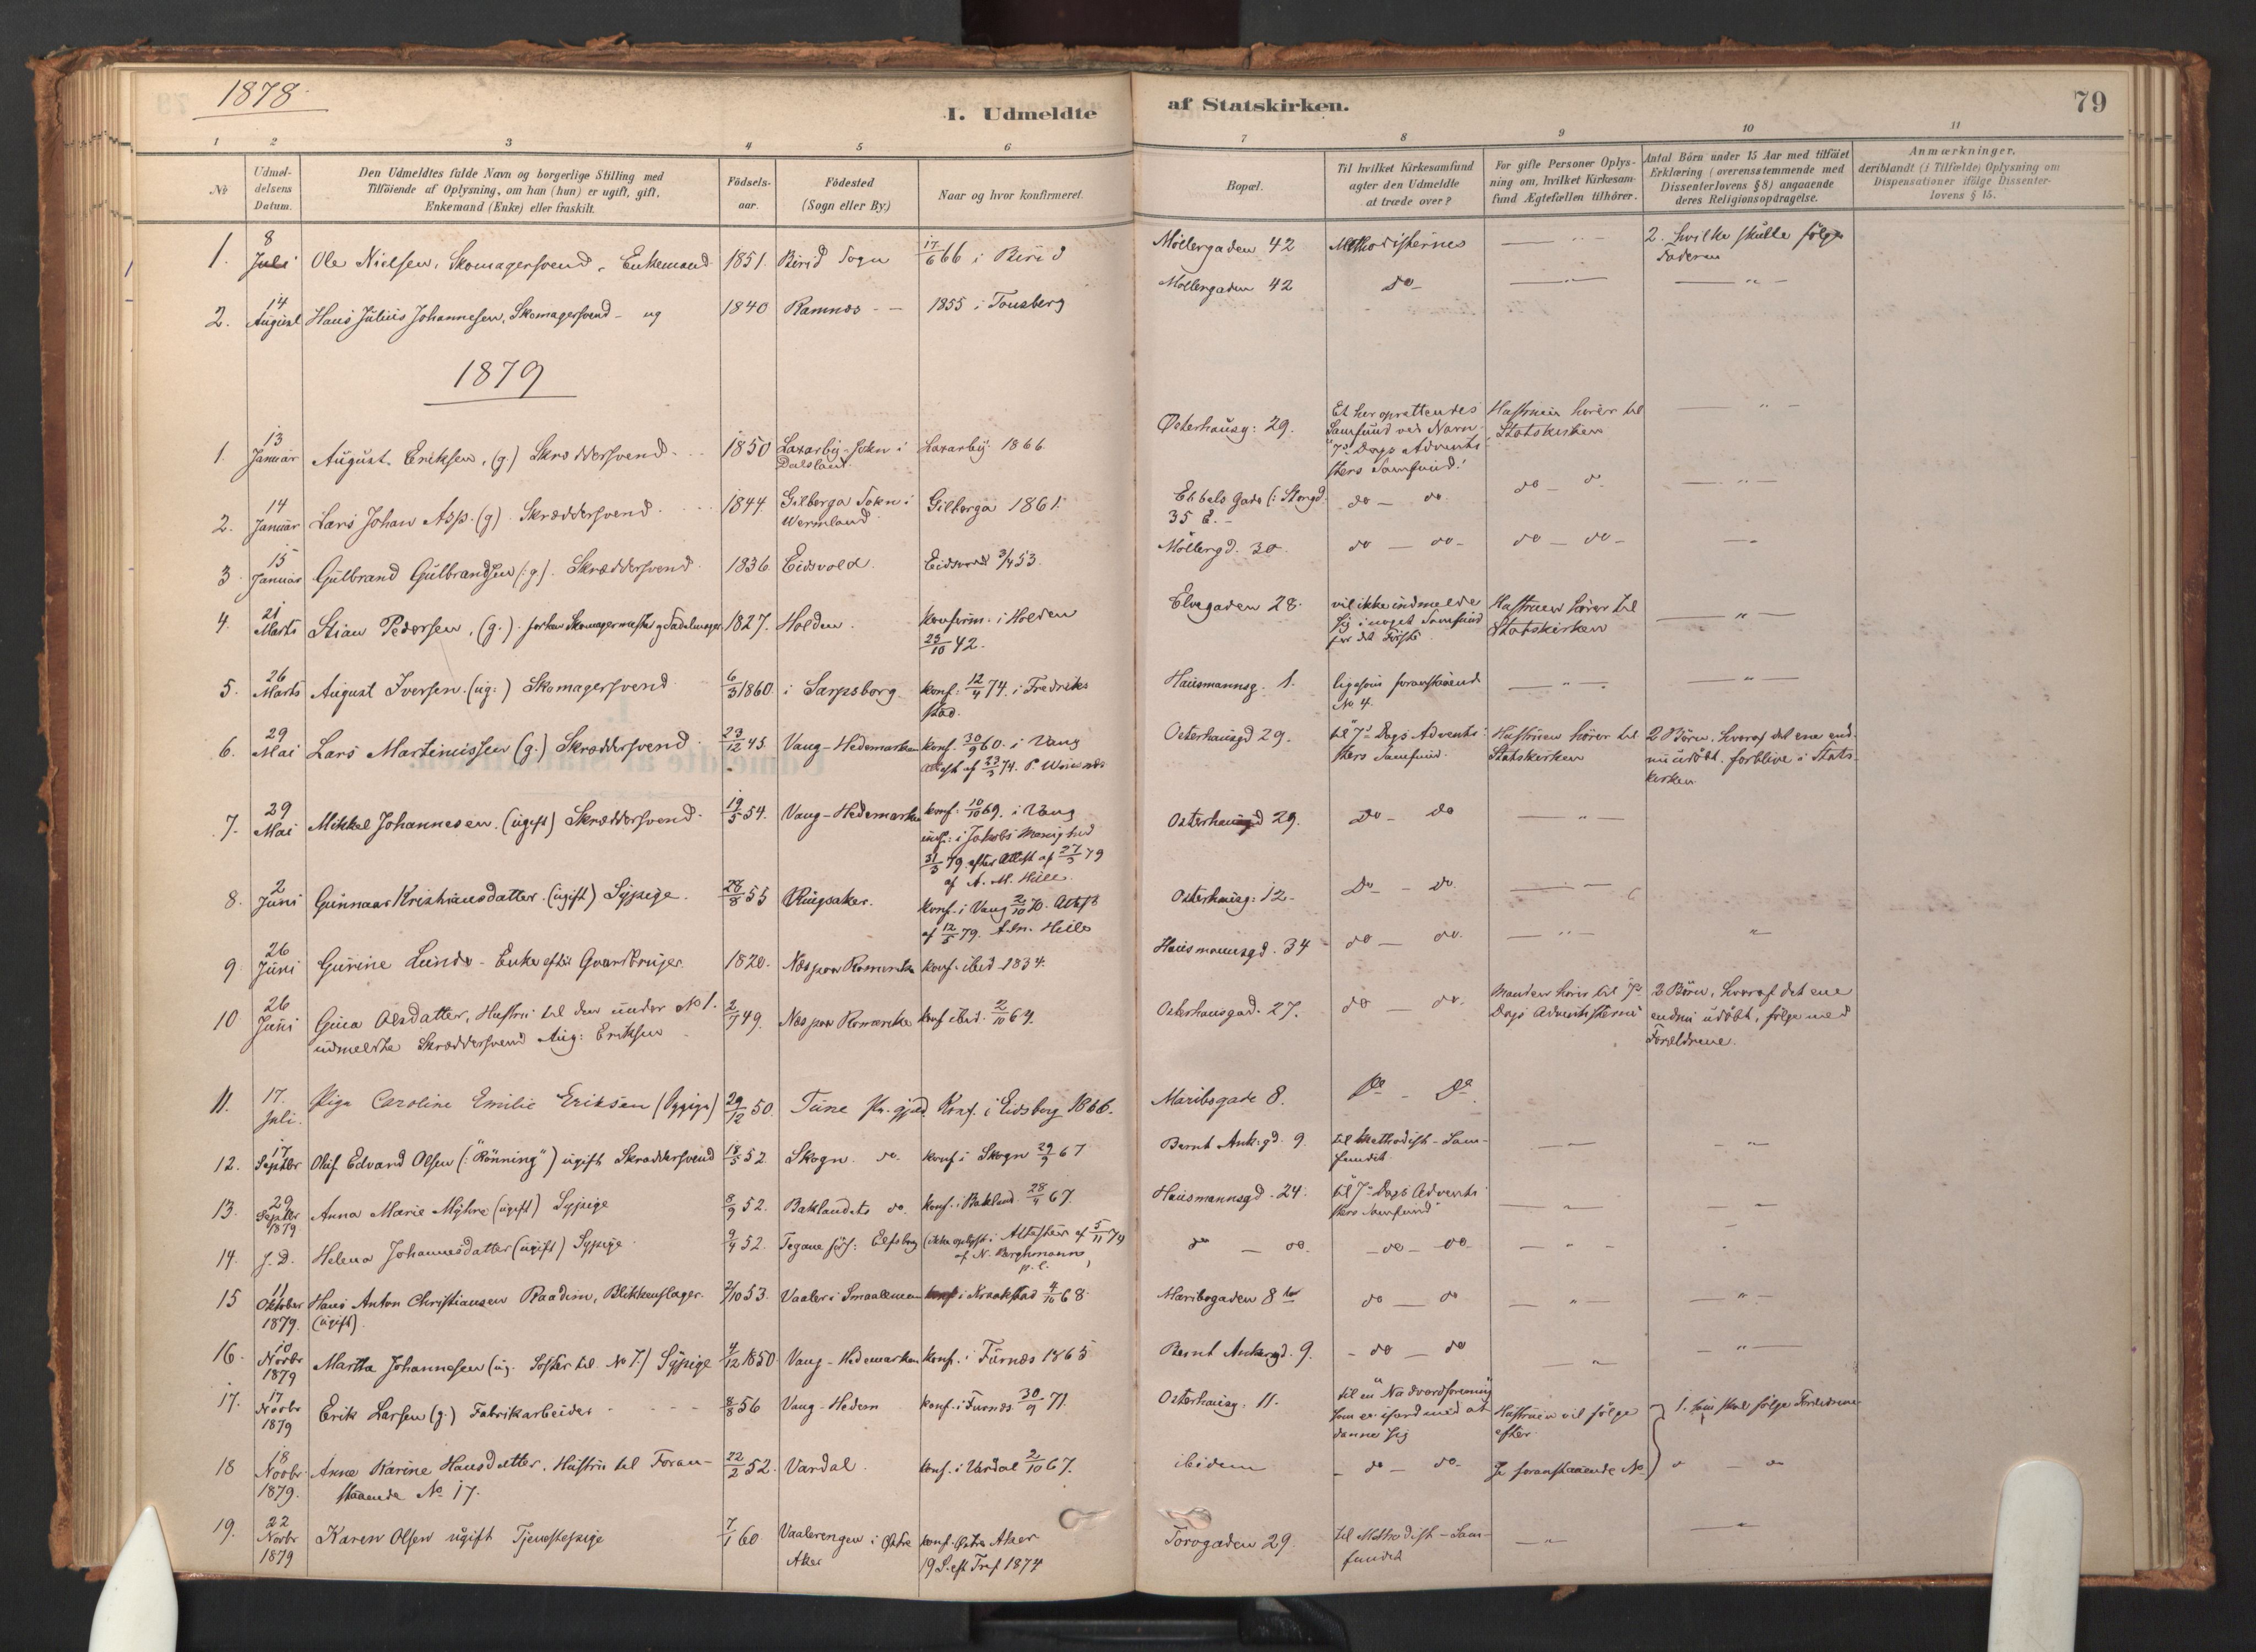 1878.
I. Udmeldte af Statskirken.
79
1 2 3 4 5 6 7 8 9 10 11
No
Udmeldelsens Datum.
Den Udmeldtes fulde Navn og borgerlige Stilling med Tilföiende af Oplysning, om han (hun) er ugift, gift, Enkemand (Enke) eller fraskilt.
Födsels-aar.
Födested (Sogn eller By.)
Naar og hvor konfirmeret.
Bopæl.
Til hvilket Kirkesamfund agter den Udmeldte at træde over?
For gifte Personer Oplysning om, hvilket Kirkesamfund Ægtefællen tilhörer.
Antal Börn under 15 Aar med tilföiet Erklæring (overensstemmende med Dissenterlovens § 8) angaaende deres Religionsopdragelse.
Anmærkninger, deriblandt (i Tilfælde) Oplysning om Dispensationer ifölge Dissenterlovens § 15.
1. 8 Juli Ole Nielsen, Skomagersvend, Enkemand 1851. Birid Sogn 17/6 66 i Birid Möllergaden 42 Methodisternes — " — 2. hvilke skulle fölge Faderen
2. 14 August Hans Julius Johannesen, Skomagersvend - ug 1840 Ramnæs - — 1855 i Tonsberg Möllergaden 42 do — " — — " —
1879
1. 13 Januar August Eriksen, (g.) Skræddersvend 1850 Laxarby Sokn i Dalsland Laxarby 1866. Østerhausg: 29. Et her oprettendes Samfund ved Navn "7de Dags Adventisters Samfund". Hustruen hörer til Statskirken — " —
2. 14 Januar Lars Johan Asp. (g). Skræddersvend. 1844. Gilberga Sokn i Wermland Gilberga 1861. Ebbels Gade (: Storgd. 35 E. - do — do. do — do. — " —
3. 15 Januar Gulbrand Gulbrandsen (: g). Skræddersvend. 1836. Eidsvold. Eidsvold 3/4 53. Möllergd. 30. do — do - do — do - — "
4. 21 Marts Stian Pedersen, (g.). forhen Skomagermester og Sadelmager 1827. Holden. Konfirm. i Holden 23/10 42. Elvegaden 28. vil ikke indmelde sig i noget Samfund for det Förste. Hustruen hörer til Statskirken — " —
5. 26 Marts August Iversen. (ug:) Skomagersvend 6/3 1860 i Sarpsborg. konf: 12/4 74. i Fredrikstad. Hausmannsg. 1. ligesom foranstaaende No 4. — " — — " —
6. 29 Mai Lars Martiniussen (g.) Skræddersvend 23/12 43. Vang - Hedemarken konf. 30/9 60. i Vang Attest af 23/3 74. Osterhausgd 29. til "7de Dags Adventisters Samfund. Hustruen hörer til Statskirken 2 Börn, hvoraf det ene endnu udöbt. forblive i Statskirken
7. 29 Mai Mikkel Johannesen. (ugift) Skræddersvend. 19/5 54. Vang - Hedemarken konf: 10/10 69. i Vang indf: i Jakobs Menighed 31/3 79. efter Attest af 27/3 79 af A. M. Hille. Osterhausgd 29. Do - do — " —
8. 2 Juni Gunnaar Kristiansdatter. (ugift) Sypige. 28/8 55 Ringsaker. konf. i Vang 2/10 70. Attest af 12/5 79. Adm. Hille Osterhausg: 12. Do - do. — " —
9. 26 Juni Gurine Lunde - Enke efter Gaardbruger. 1820. Næs paa Romerike konf. ibid. 1834. Hausmannsgd. 34 do — do. — " — "
10 26 Juni Gina Olsdatter, Hustru til den under No 1. udmeldte Skræddersvend Aug: Eriksen 2/7 49. Næs paa Romerike konf ibid. 2/10 64. Osterhausgad. 27. do — do. Manden hörer til 7de Dags Adventisterne 2 Börn, hvoraf det ene endnu udöbt, fölge med Forældrene.
11. 17. Juli. Pige Caroline Emilie Eriksen (Sypige) 29/12 50. Tune Pr. gjeld Konf. i Eidsberg 1866. Maribogade 8. Do - Do.
12. 17 Septbr Oluf Edvard Olsen (: "Rönning") ugift Skræddersvend 18/5 52. Skogn. do. konf i Skogn 29/9 67 Bernt Ank: gd. 9. til Methodist-Samfundet. — " — — " —
13. 29 Septbr 1879. Anna Marie Myhre (ugift) Sypige 8/9 52. Baklandets do. konf. i Bakland. 28/4 67. Hausmannsgd. 24. til "7de Dags Adventisters Samfund" — " — — " —
14. J. D. Helena Johannesdatter (ugift) Sypige. 9/4 52. Elfsborg (ikke oplyst i Attesten af 5/11 74 af N. Berghmann, p. l. do — do. — do — do — " —
15 11 Oktober 1879. Hans Anton Christiansen Raadim, Blikkenslager. (ugift). 2/10 53. Vaaler i Smaalenene konf. i Kraakstad 4/10 68. Maribogaden 8 do — do — " — — " —
16. 10 Novbr 1879 Martha Johannesen (ug. Söster til No 7.) Sypige 4/12 1850. Vang - Hedemarken konf. i Furnæs 1865 Bernt Ankersgd. 9. - do — do — " — — " —
17. 17 Novbr 1879 Erik Larsen (g.) Fabrikarbeider 8/8 56 Vang - Hedem konf. i Furnæs 30/9 71. Osterhausg: 11. til en "Nadverdforening" som er ifærd med at danne sig Hustruen vil fölge efter. 1. som skal fölge Forældrene
18 18 Novbr. 1879. Anne Karine Hansdatter. Hustru til Foranstaaende No 17. 22/2 52. Vardal. konf. i Vardal 2/10 67. ibidem - do — do. Se foranstaaende No do — do
19. 22 Novbr 1879 Karen Olsen ugift Tjenestepige 7/1 60 Vaalerengen i Østre Aker konf. Østre Aker 19 S. eft Tref 1874 Torvgaden 29. til Methodist-Samfundet — " — — " —